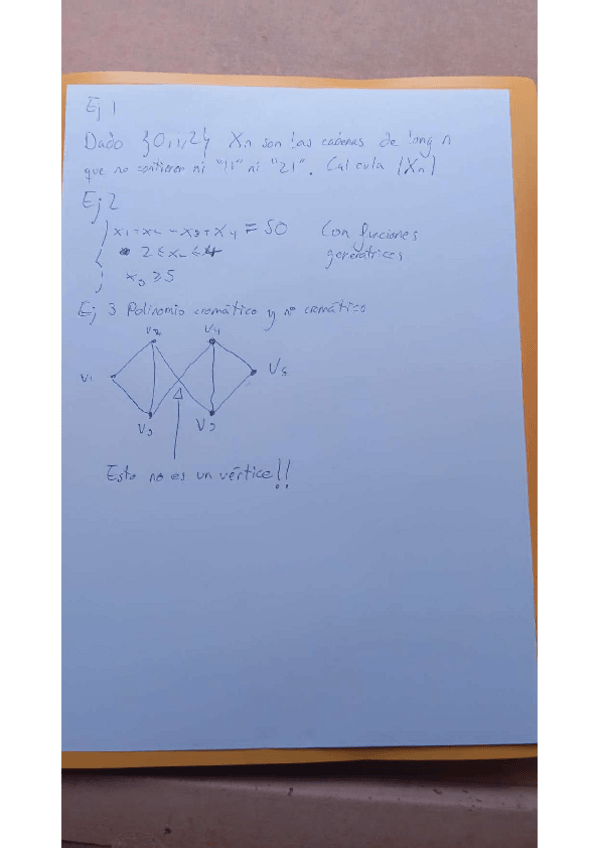 Ej 1
Dado {0,1,2} Xn son las cadenas de long n
que no contienen ni "11" ni "21". Calcula |Xn|
Ej 2
x1+x2+x3+x4 = 50 Con funciones
2 ≤ x2 ≤ 4 generatrices
x3 ≥ 5
Ej 3 Polinomio cromático y nº cromático
V2 V4
V1 V5
V3 V3
Esto no es un vértice!!